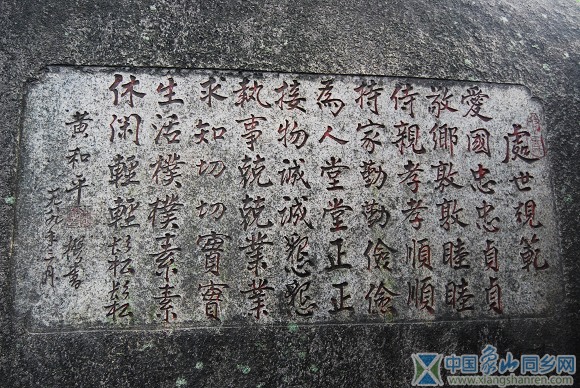 處世規範
愛國忠忠貞貞
敬鄉敦敦睦睦
侍親孝孝順順
持家勤勤儉儉
為人堂堂正正
接物誠誠懇懇
執事兢兢業業
求知切切實實
生活樸樸素素
休闲輕輕鬆鬆
黄和平 撰書
中国象山同乡网
www.xiangshanren.com